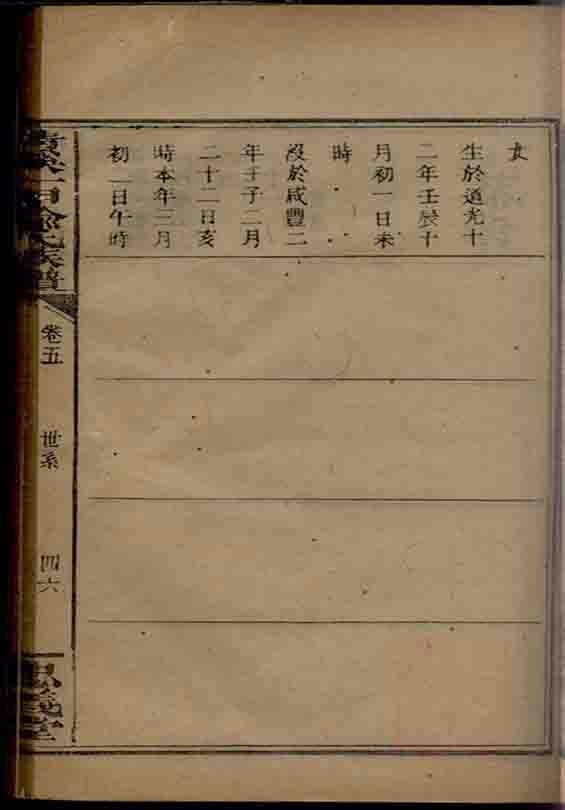 女
生於道光十
二年壬辰十
月初一日未
時
沒於咸豐二
年壬子二月
二十二日亥
時本年三月
初一日午時
氏族譜
卷五
世系
四六